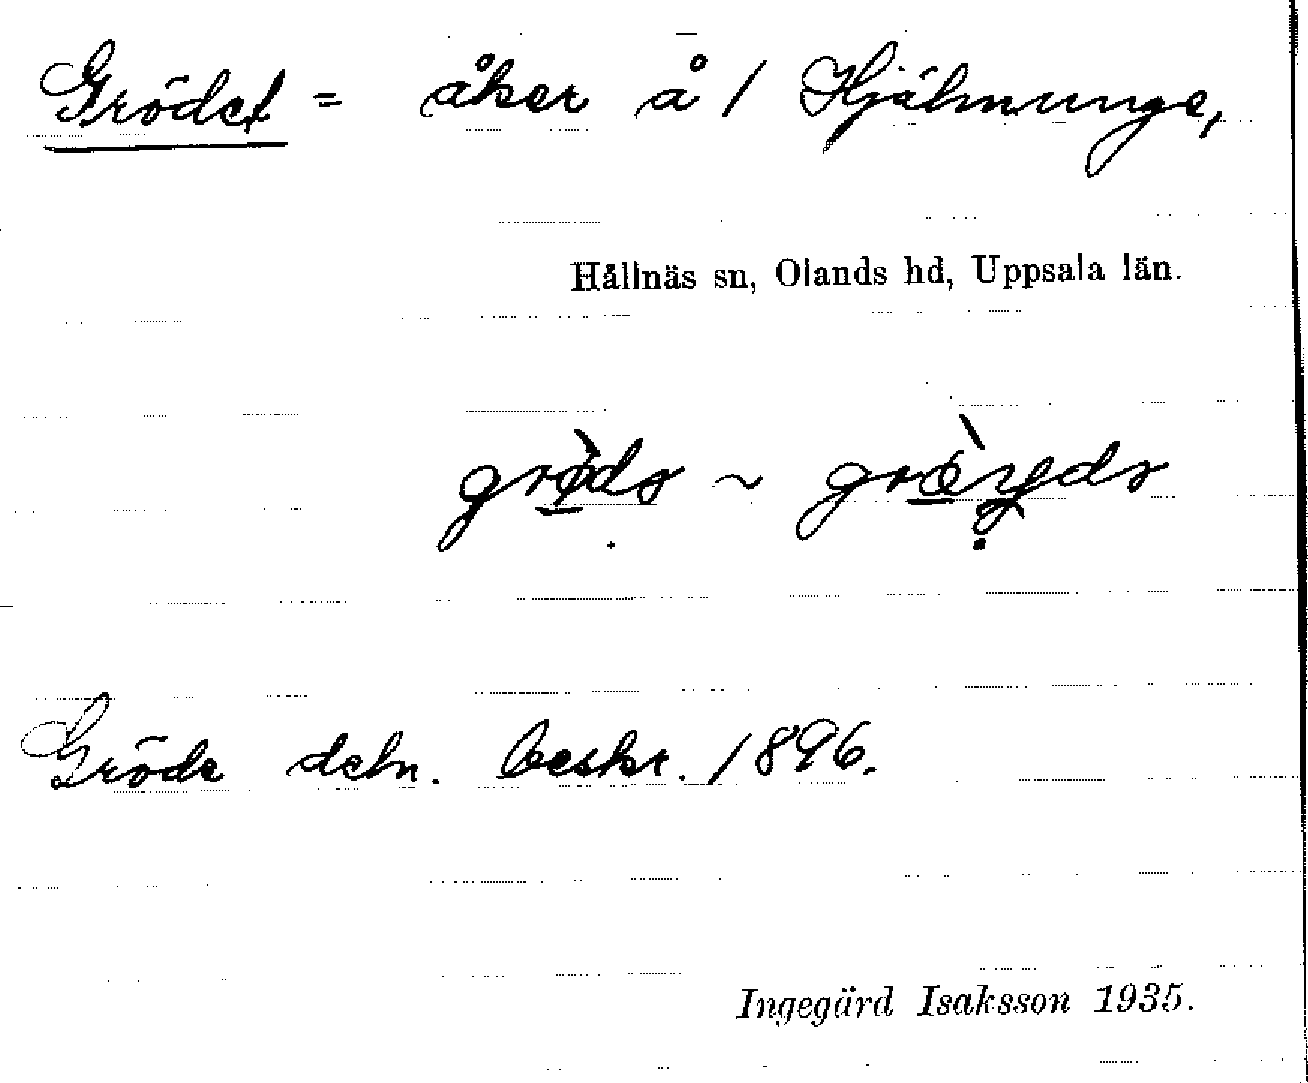 Grödet = åker å 1 Hjälmunge,
Hållnäs sn, Olands hd, Uppsala län.
Gröde deln. beskr. 1896.
Ingegärd Isaksson 1935.